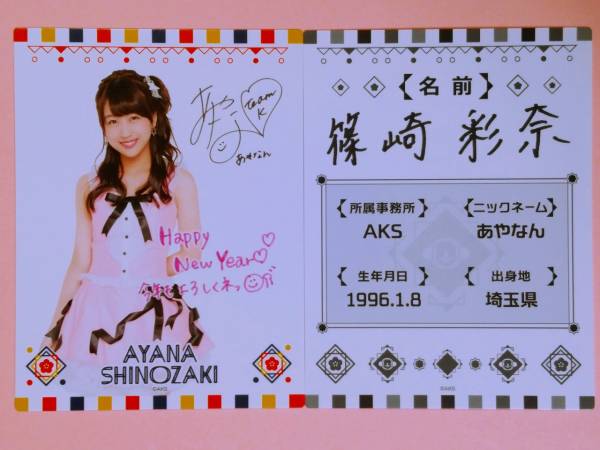 team
K
あやなん
Happy
New Year
今年もよろしくネッ
AYANA
SHINOZAKI
©AKS
【名前】
篠崎 彩奈
【所属事務所】
AKS
【ニックネーム】
あやなん
【生年月日】
1996.1.8
【出身地】
埼玉県
©AKS